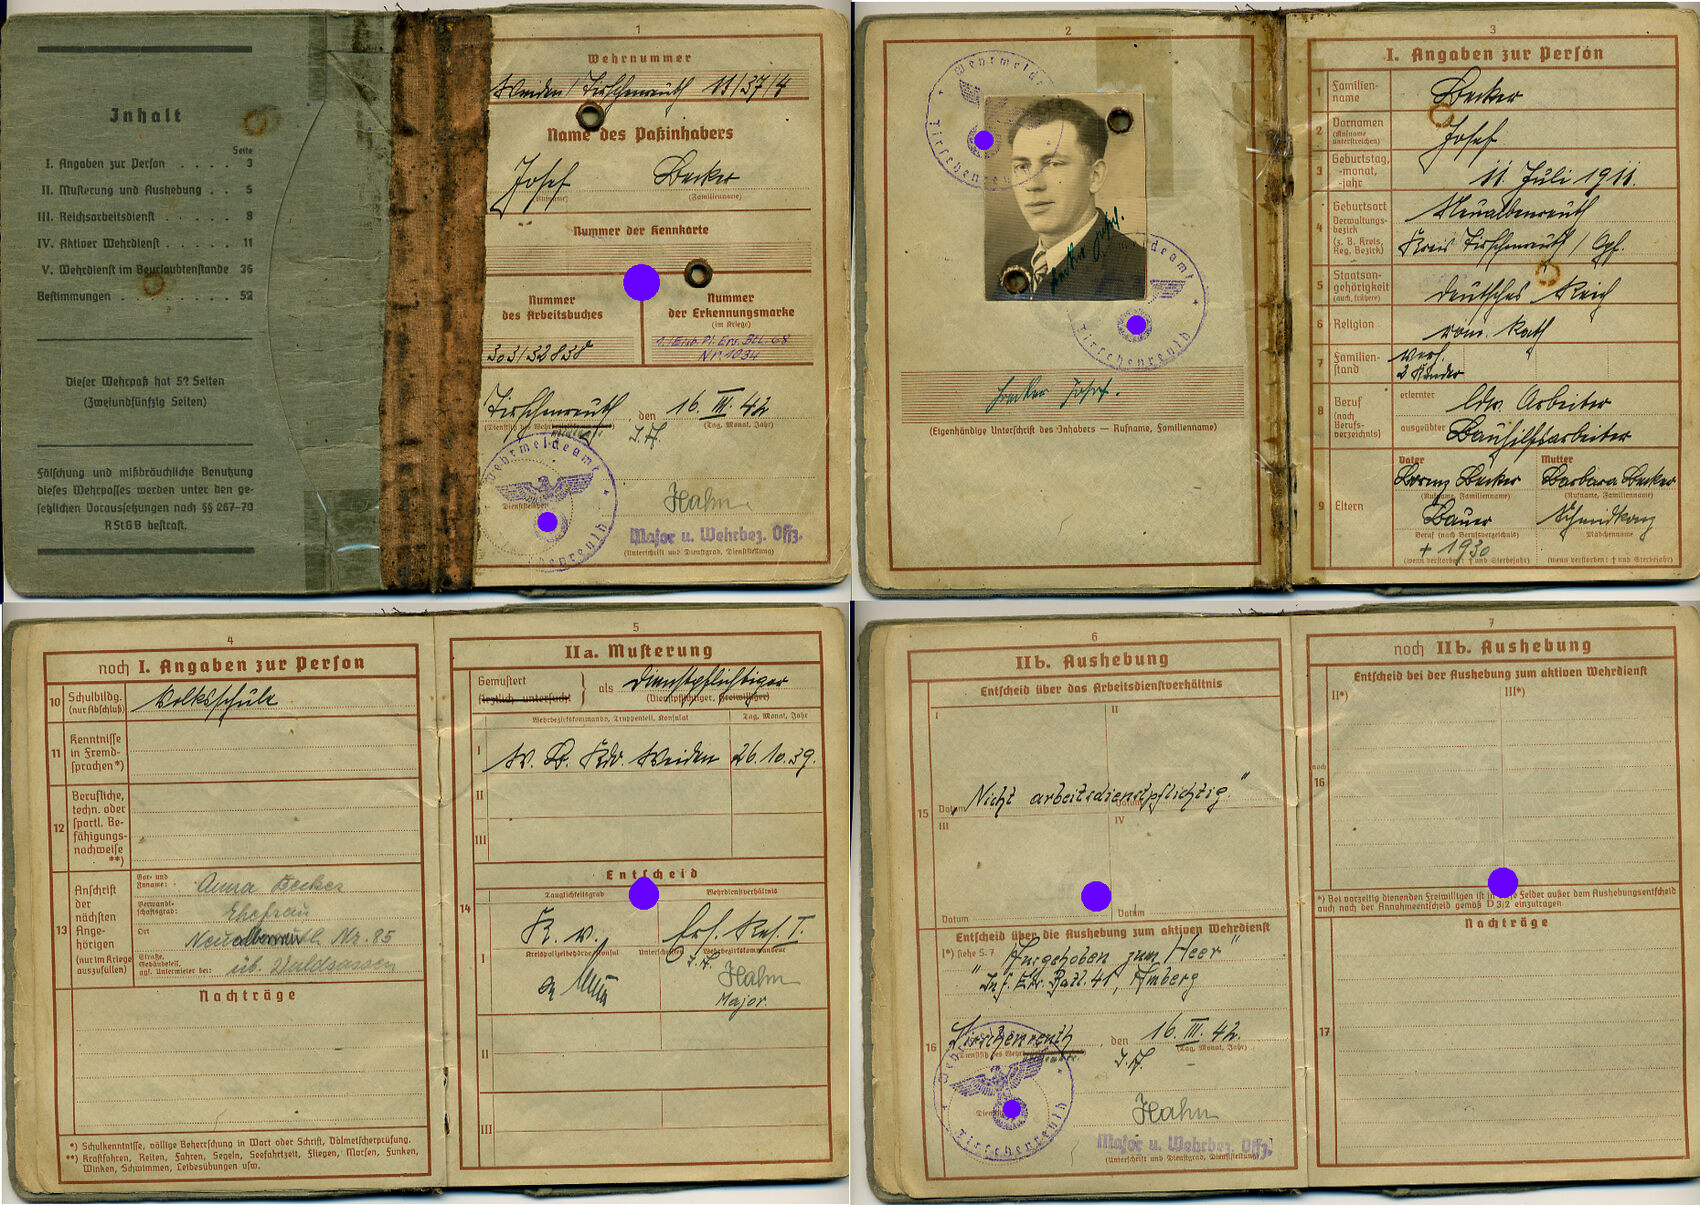 Inhalt
Seite
I. Angaben zur Person . . . . 3
II. Musterung und Aushebung . . 5
III. Reichsarbeitsdienst . . . . . 8
IV. Aktiver Wehrdienst . . . . . 11
V. Wehrdienst im Beurlaubtenstande 36
Bestimmungen . . . . . . . . 52
Dieser Wehrpaß hat 52 Seiten
(Zweiundfünfzig Seiten)
Fälschung und mißbräuchliche Benutzung
dieses Wehrpasses werden unter den ge-
setzlichen Voraussetzungen nach §§ 267–70
RStGB bestraft.
1
Wehrnummer
Weiden / Tirschenreuth 11/37/4
Name des Paßinhabers
Josef Becker
(Rufname) (Familienname)
Nummer der Kennkarte
Nummer
des Arbeitsbuches
303/32838
Nummer
der Erkennungsmarke
(im Kriege)
Nr. 1034
Tirschenreuth den 16. III. 42
(Tag, Monat, Jahr)
I.A.
Wehrmeldeamt
Tirschenreuth
Dienststempel
Hahn
Major u. Wehrbez. Offz.
(Unterschrift und Dienstgrad, Dienststellung)
2
Wehrmeldeamt
Tirschenreuth
Becker Josef.
Wehrmeldeamt
Tirschenreuth
Becker Josef.
(Eigenhändige Unterschrift des Inhabers — Rufname, Familienname)
3
I. Angaben zur Person
1 Familien-
name
Becker
2 Vornamen
(Rufname
unterstreichen)
Josef
3 Geburtstag,
-monat,
-jahr
11. Juli 1911.
4 Geburtsort
Verwaltungs-
bezirk
(z. B. Kreis,
Reg. Bezirk)
Neualbenreuth
Kreis Tirschenreuth / Opf.
5 Staatsan-
gehörigkeit
(auch frühere)
Deutsches Reich
6 Religion
röm. kath
7 Familien-
stand
verh.
2 Kinder
8 Beruf
(nach
Berufs-
verzeichnis)
erlernter
ldw. Arbeiter
ausgeübter
Bauhilfsarbeiter
9 Eltern
Vater Mutter
Lorenz Becker Barbara Becker
(Rufname, Familienname) (Rufname, Familienname)
Bauer
Beruf (nach Berufsverzeichnis) Mädchenname
+ 1930
(wenn verstorben: † und Sterbejahr) (wenn verstorben: † und Sterbejahr)
4
noch I. Angaben zur Person
10 Schulbildg.
(nur Abschluß)
Volksschule
11 Kenntnisse
in Fremd-
sprachen*)
12 Berufliche,
techn. oder
sportl. Be-
fähigungs-
nachweise
**)
13 Anschrift
der
nächsten
Ange-
hörigen
(nur im Kriege
auszufüllen)
Vor- und
Zuname:
Anna Becker
Verwandt-
schaftsgrad:
Ehefrau
Ort
Neualbenreuth Nr. 85
Straße,
Gebäudeteil,
ggf. Untermieter bei:
üb. Waldsassen
Nachträge
*) Schulkenntnisse, völlige Beherrschung in Wort oder Schrift, Dolmetscherprüfung.
**) Kraftfahren, Reiten, Fahren, Segeln, Seefahrtzeit, Fliegen, Morsen, Funken,
Winken, Schwimmen, Leibesübungen usw.
5
IIa. Musterung
Gemustert
ärztlich untersucht
als Dienstpflichtiger
(Dienstpflichtiger, Freiwilliger)
Wehrbezirkskommando, Truppenteil, Konsulat Tag, Monat, Jahr
I W. B. Kdo. Weiden 26.10.39.
II
III
Entscheid
14
Tauglichkeitsgrad Wehrdienstverhältnis
K. v. Ers. Res. I.
I
Kreispolizeibehörde/Konsul Unterschriften Wehrbezirkskommandeur
I.A.
Hahn
Major.
II
III
6
IIb. Aushebung
Entscheid über das Arbeitsdienstverhältnis
I II
15
Datum Datum
„Nicht arbeitsdienstpflichtig."
III IV
Datum Datum
Entscheid über die Aushebung zum aktiven Wehrdienst
I*) siehe S. 7
„Ausgehoben zum Heer"
"Inf. Ers. Batl. 41, Amberg
16
Tirschenreuth den 16. III. 42
(Tag, Monat, Jahr)
I.A.
Wehrmeldeamt
Tirschenreuth
Hahn
Major u. Wehrbez. Offz.
(Unterschrift und Dienstgrad, Dienststellung)
7
noch IIb. Aushebung
Entscheid bei der Aushebung zum aktiven Wehrdienst
II*) III*)
noch
16
*) Bei vorzeitig dienenden Freiwilligen ist in diese Felder außer dem Aushebungsentscheid
auch noch der Annahmeentscheid gemäß D 3/2 einzutragen.
Nachträge
17